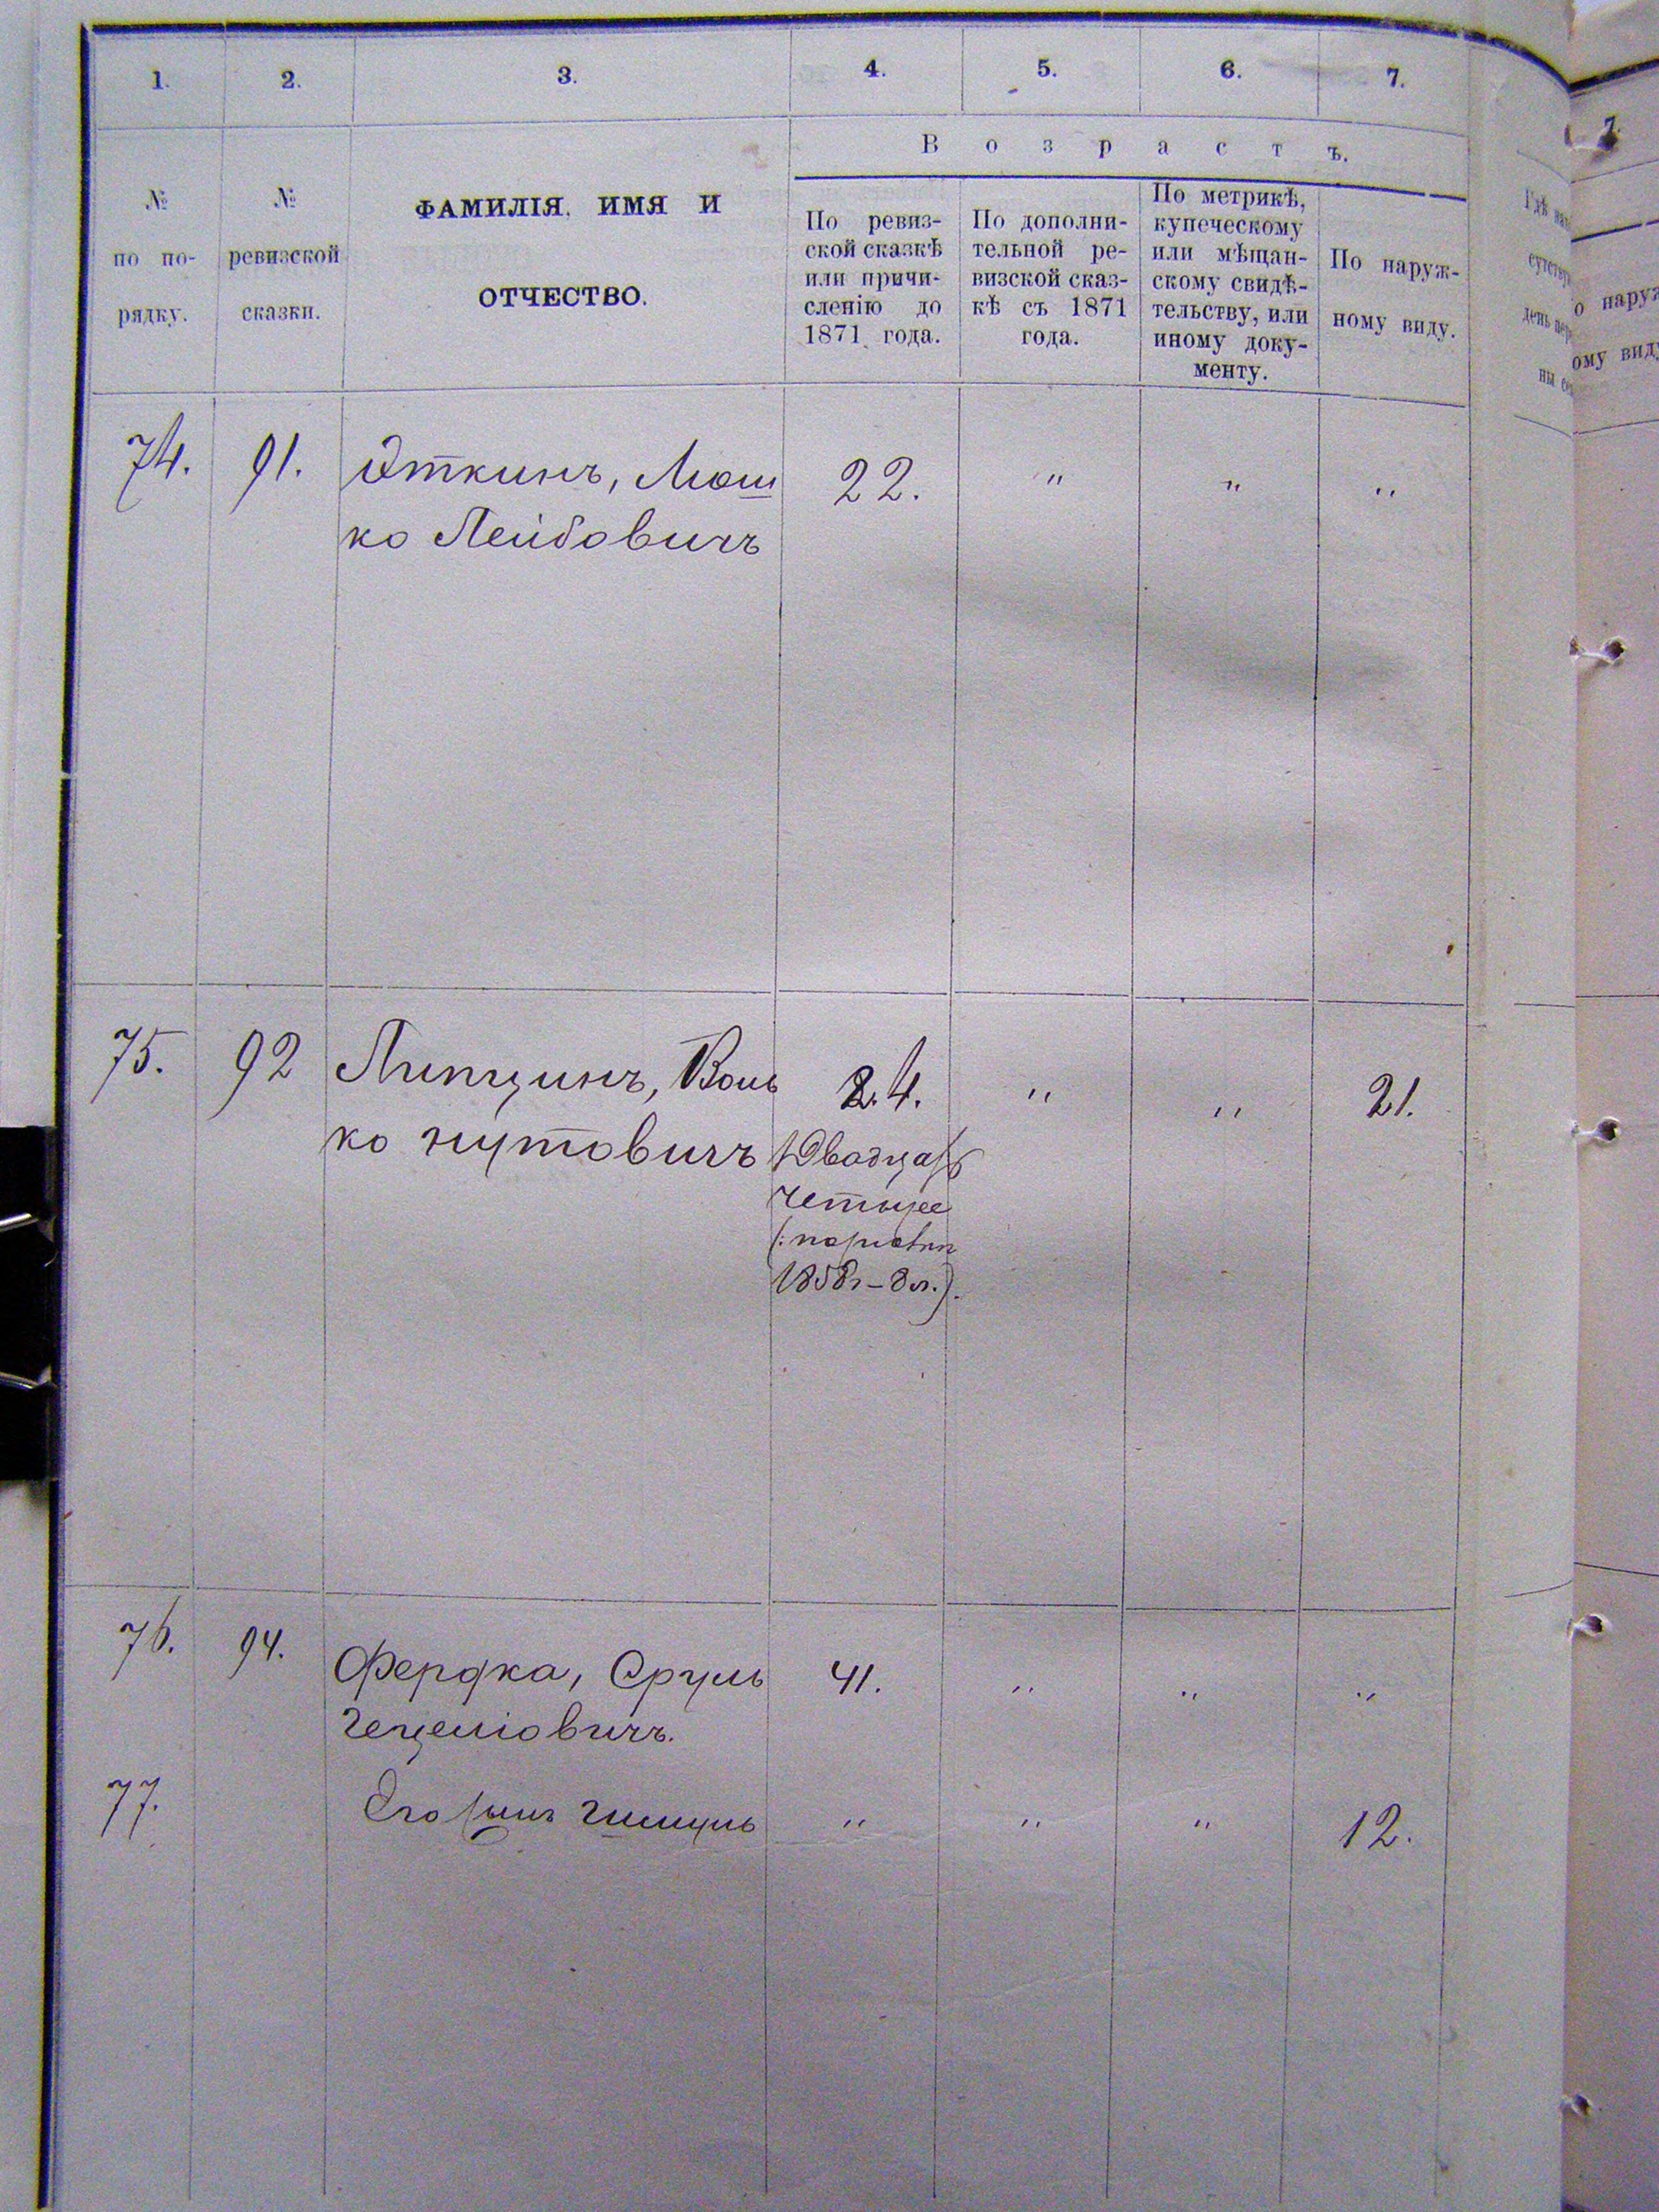 1. 2. 3. 4. 5. 6. 7.
Возрастъ.
№ по по-
рядку.
№
ревизской
сказки.
ФАМИЛІЯ, ИМЯ И
ОТЧЕСТВО.
По ревиз-
ской сказкѣ
или причи-
сленію до
1871 года.
По дополни-
тельной ре-
визской сказ-
кѣ съ 1871
года.
По метрикѣ,
купеческому
или мѣщан-
скому свидѣ-
тельству, или
иному доку-
менту.
По наруж-
ному виду.
74. 91. Эткинъ, Мош 22. " " "
ко Лейбовичъ
75. 92 Липщинъ, 24. " " 21.
ко нутовичъ Двадцать
четыре
1858г–8л.).
76. 94. Фердка, Сруль 41. " " "
77. Его сынъ " " " 12.
7.
о наруж
ому виду